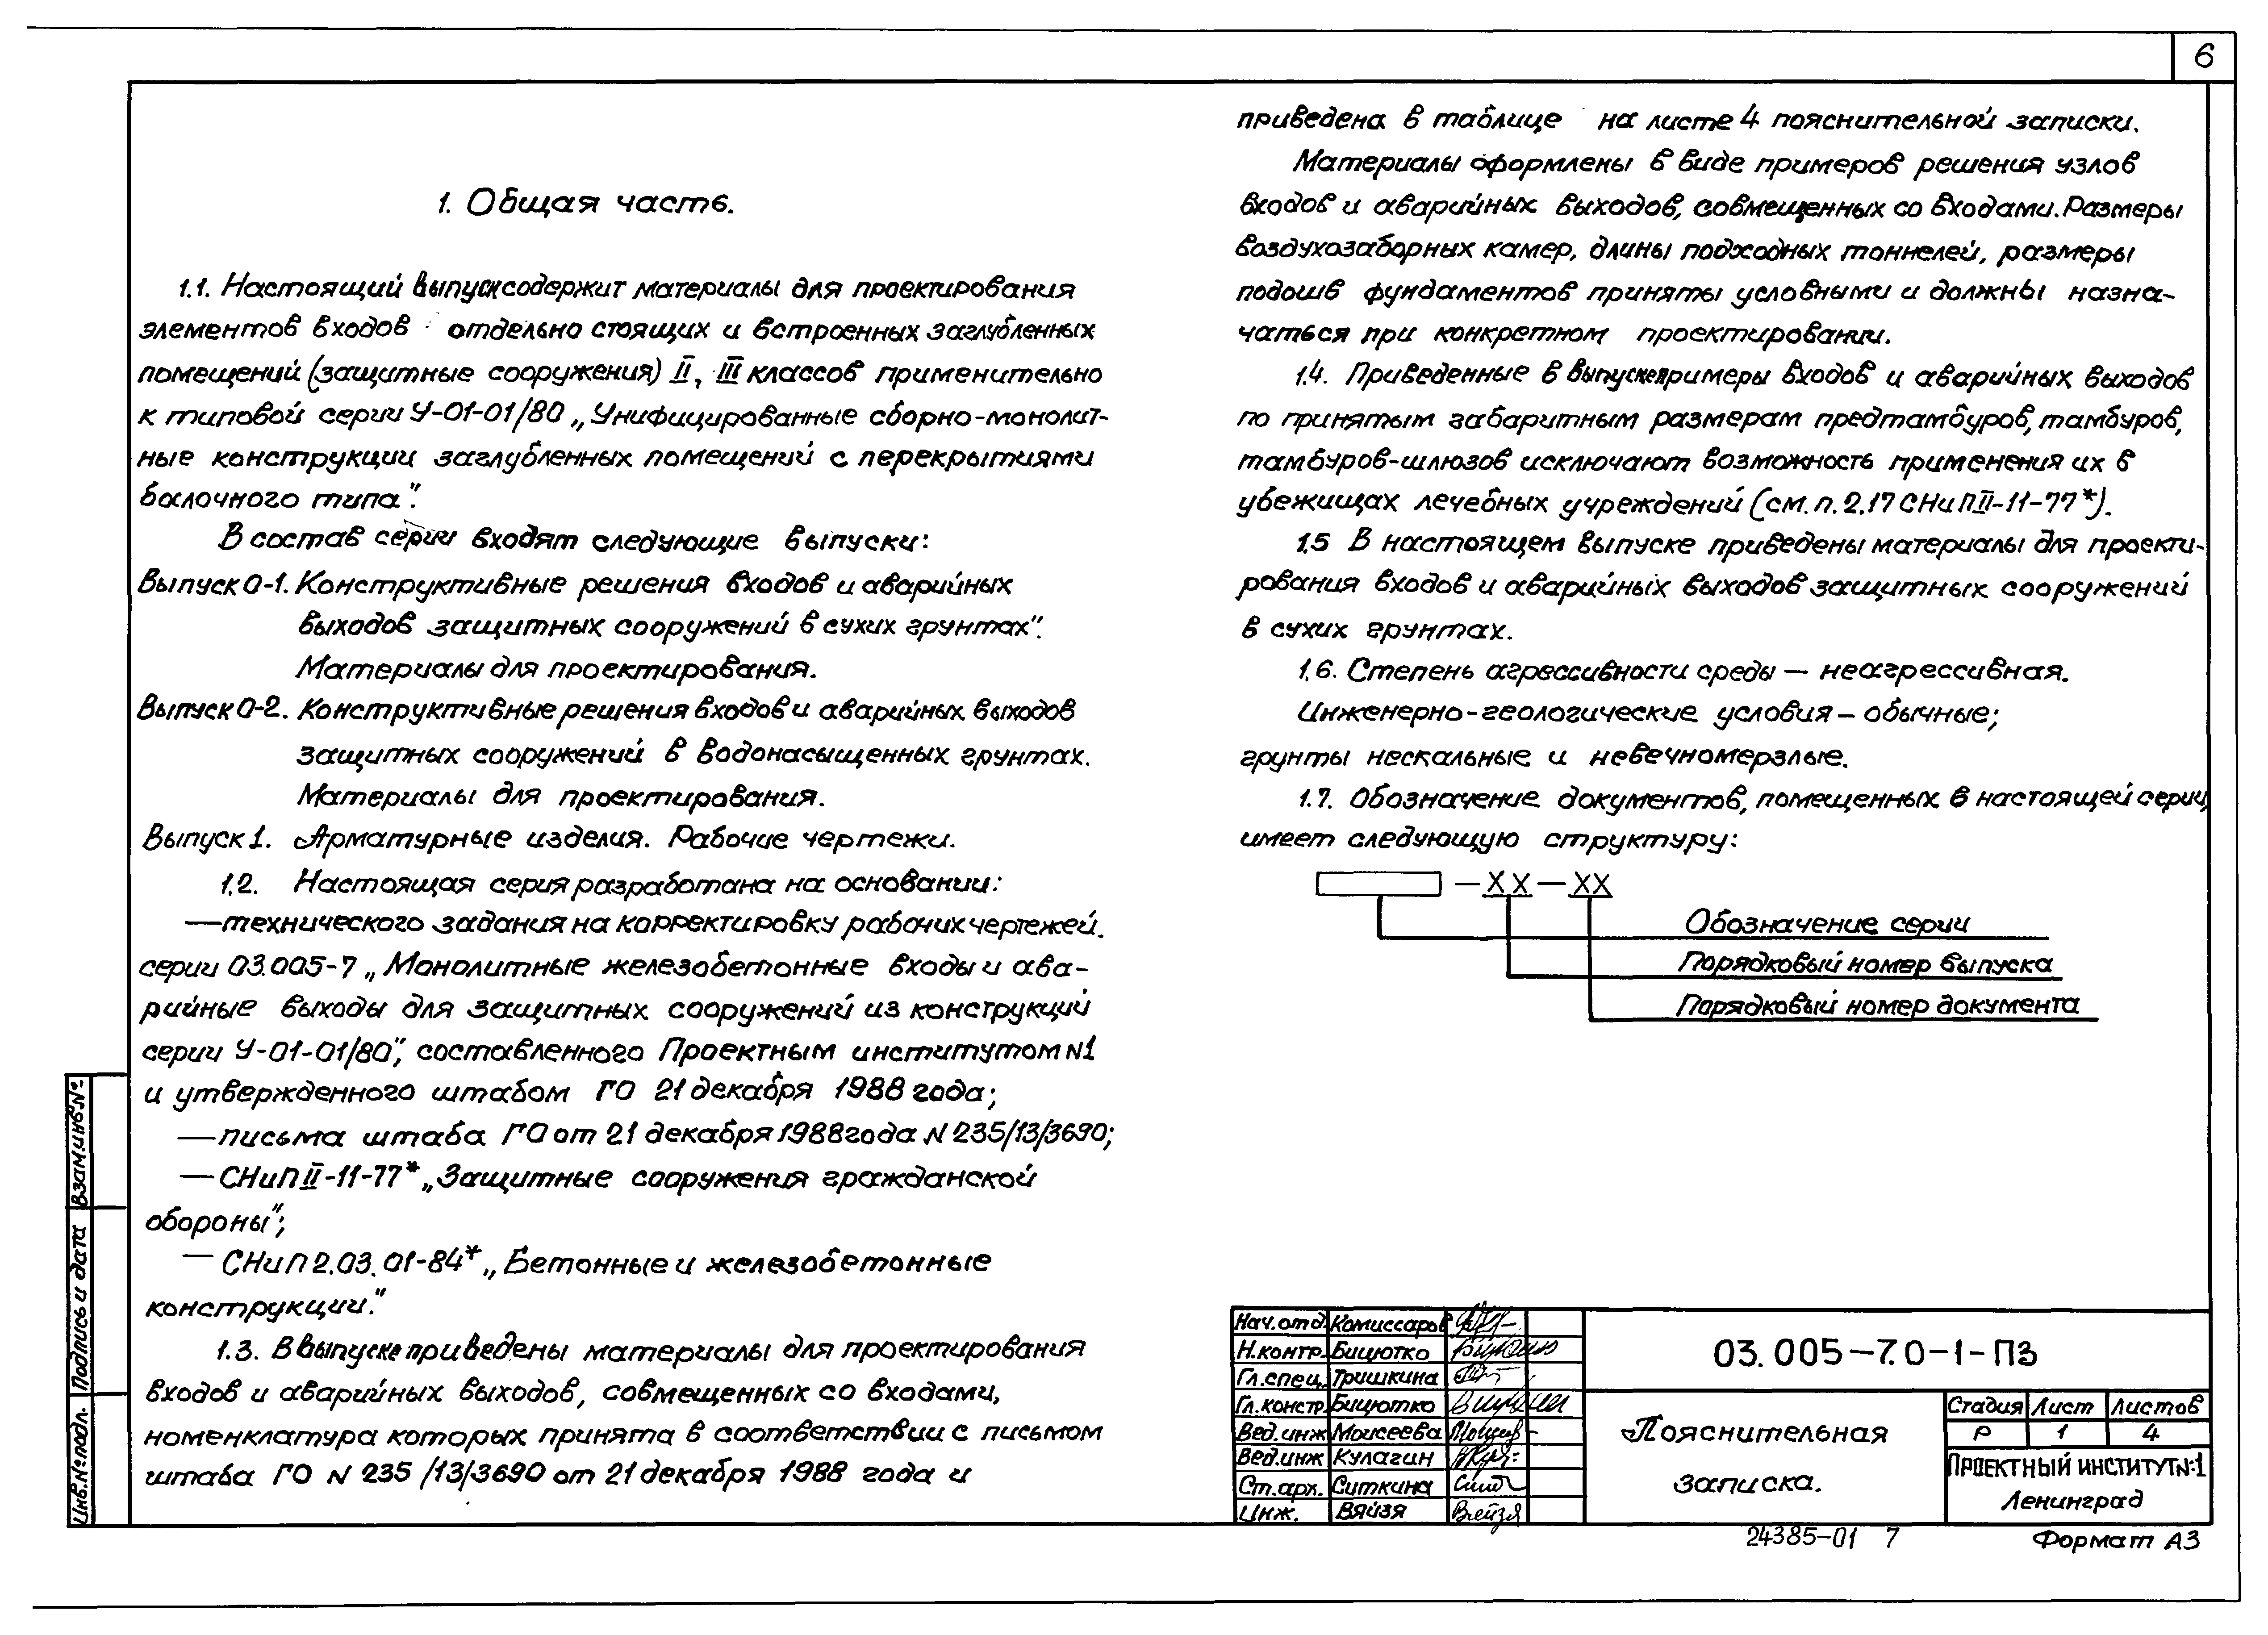 6
1. Общая часть.
1.1. Настоящий выпуск содержит материалы для проектирования
элементов входов отдельно стоящих и встроенных заглубленных
помещений (защитные сооружения) II, III классов применительно
к типовой серии У-01-01/80 „Унифицированные сборно-монолит-
ные конструкции заглубленных помещений с перекрытиями
балочного типа".
В состав серии входят следующие выпуски:
Выпуск 0-1. Конструктивные решения входов и аварийных
выходов защитных сооружений в сухих грунтах".
Материалы для проектирования.
Выпуск 0-2. Конструктивные решения входов и аварийных выходов
защитных сооружений в водонасыщенных грунтах.
Материалы для проектирования.
Выпуск 1. Арматурные изделия. Рабочие чертежи.
1.2. Настоящая серия разработана на основании:
— технического задания на корректировку рабочих чертежей.
серии 03.005-7 „Монолитные железобетонные входы и ава-
рийные выходы для защитных сооружений из конструкций
серии У-01-01/80", составленного Проектным институтом N1
и утвержденного штабом ГО 21 декабря 1988 года;
— письма штаба ГО от 21 декабря 1988 года N 235/13/3690;
— СНиП II-11-77* „Защитные сооружения гражданской
обороны";
— СНиП 2.03.01-84* „Бетонные и железобетонные
конструкции."
1.3. В выпуске приведены материалы для проектирования
входов и аварийных выходов, совмещенных со входами,
номенклатура которых принята в соответствии с письмом
штаба ГО N 235/13/3690 от 21 декабря 1988 года и
приведена в таблице на листе 4 пояснительной записки.
Материалы оформлены в виде примеров решения узлов
входов и аварийных выходов, совмещенных со входами. Размеры
воздухозаборных камер, длины подходных тоннелей, размеры
подошв фундаментов приняты условными и должны назна-
чаться при конкретном проектировании.
1.4. Приведенные в выпуске примеры входов и аварийных выходов
по принятым габаритным размерам предтамбуров, тамбуров,
тамбуров-шлюзов исключают возможность применения их в
убежищах лечебных учреждений (см. п. 2.17 СНиП II-11-77*).
1.5 В настоящем выпуске приведены материалы для проекти-
рования входов и аварийных выходов защитных сооружений
в сухих грунтах.
1.6. Степень агрессивности среды — неагрессивная.
Инженерно-геологические условия – обычные;
грунты нескальные и невечномерзлые.
1.7. Обозначение документов, помещенных в настоящей серии,
имеет следующую структуру:
— XX — XX
Обозначение серии
Порядковый номер выпуска
Порядковый номер документа
Взам.инв.№
Подпись и дата
Инв.№ подл.
Нач.отд. Комиссаров
Н.контр. Бицютко
Гл.спец. Тришкина
Гл.констр. Бицютко
Вед.инж Моисеева
Вед.инж Кулагин
Ст.арх. Ситкина
Инж. Вяйзя
03.005-7.0-1-ПЗ
Пояснительная
записка.
Стадия Лист Листов
Р 1 4
ПРОЕКТНЫЙ ИНСТИТУТ №1
Ленинград
24385-01 7
Формат А3